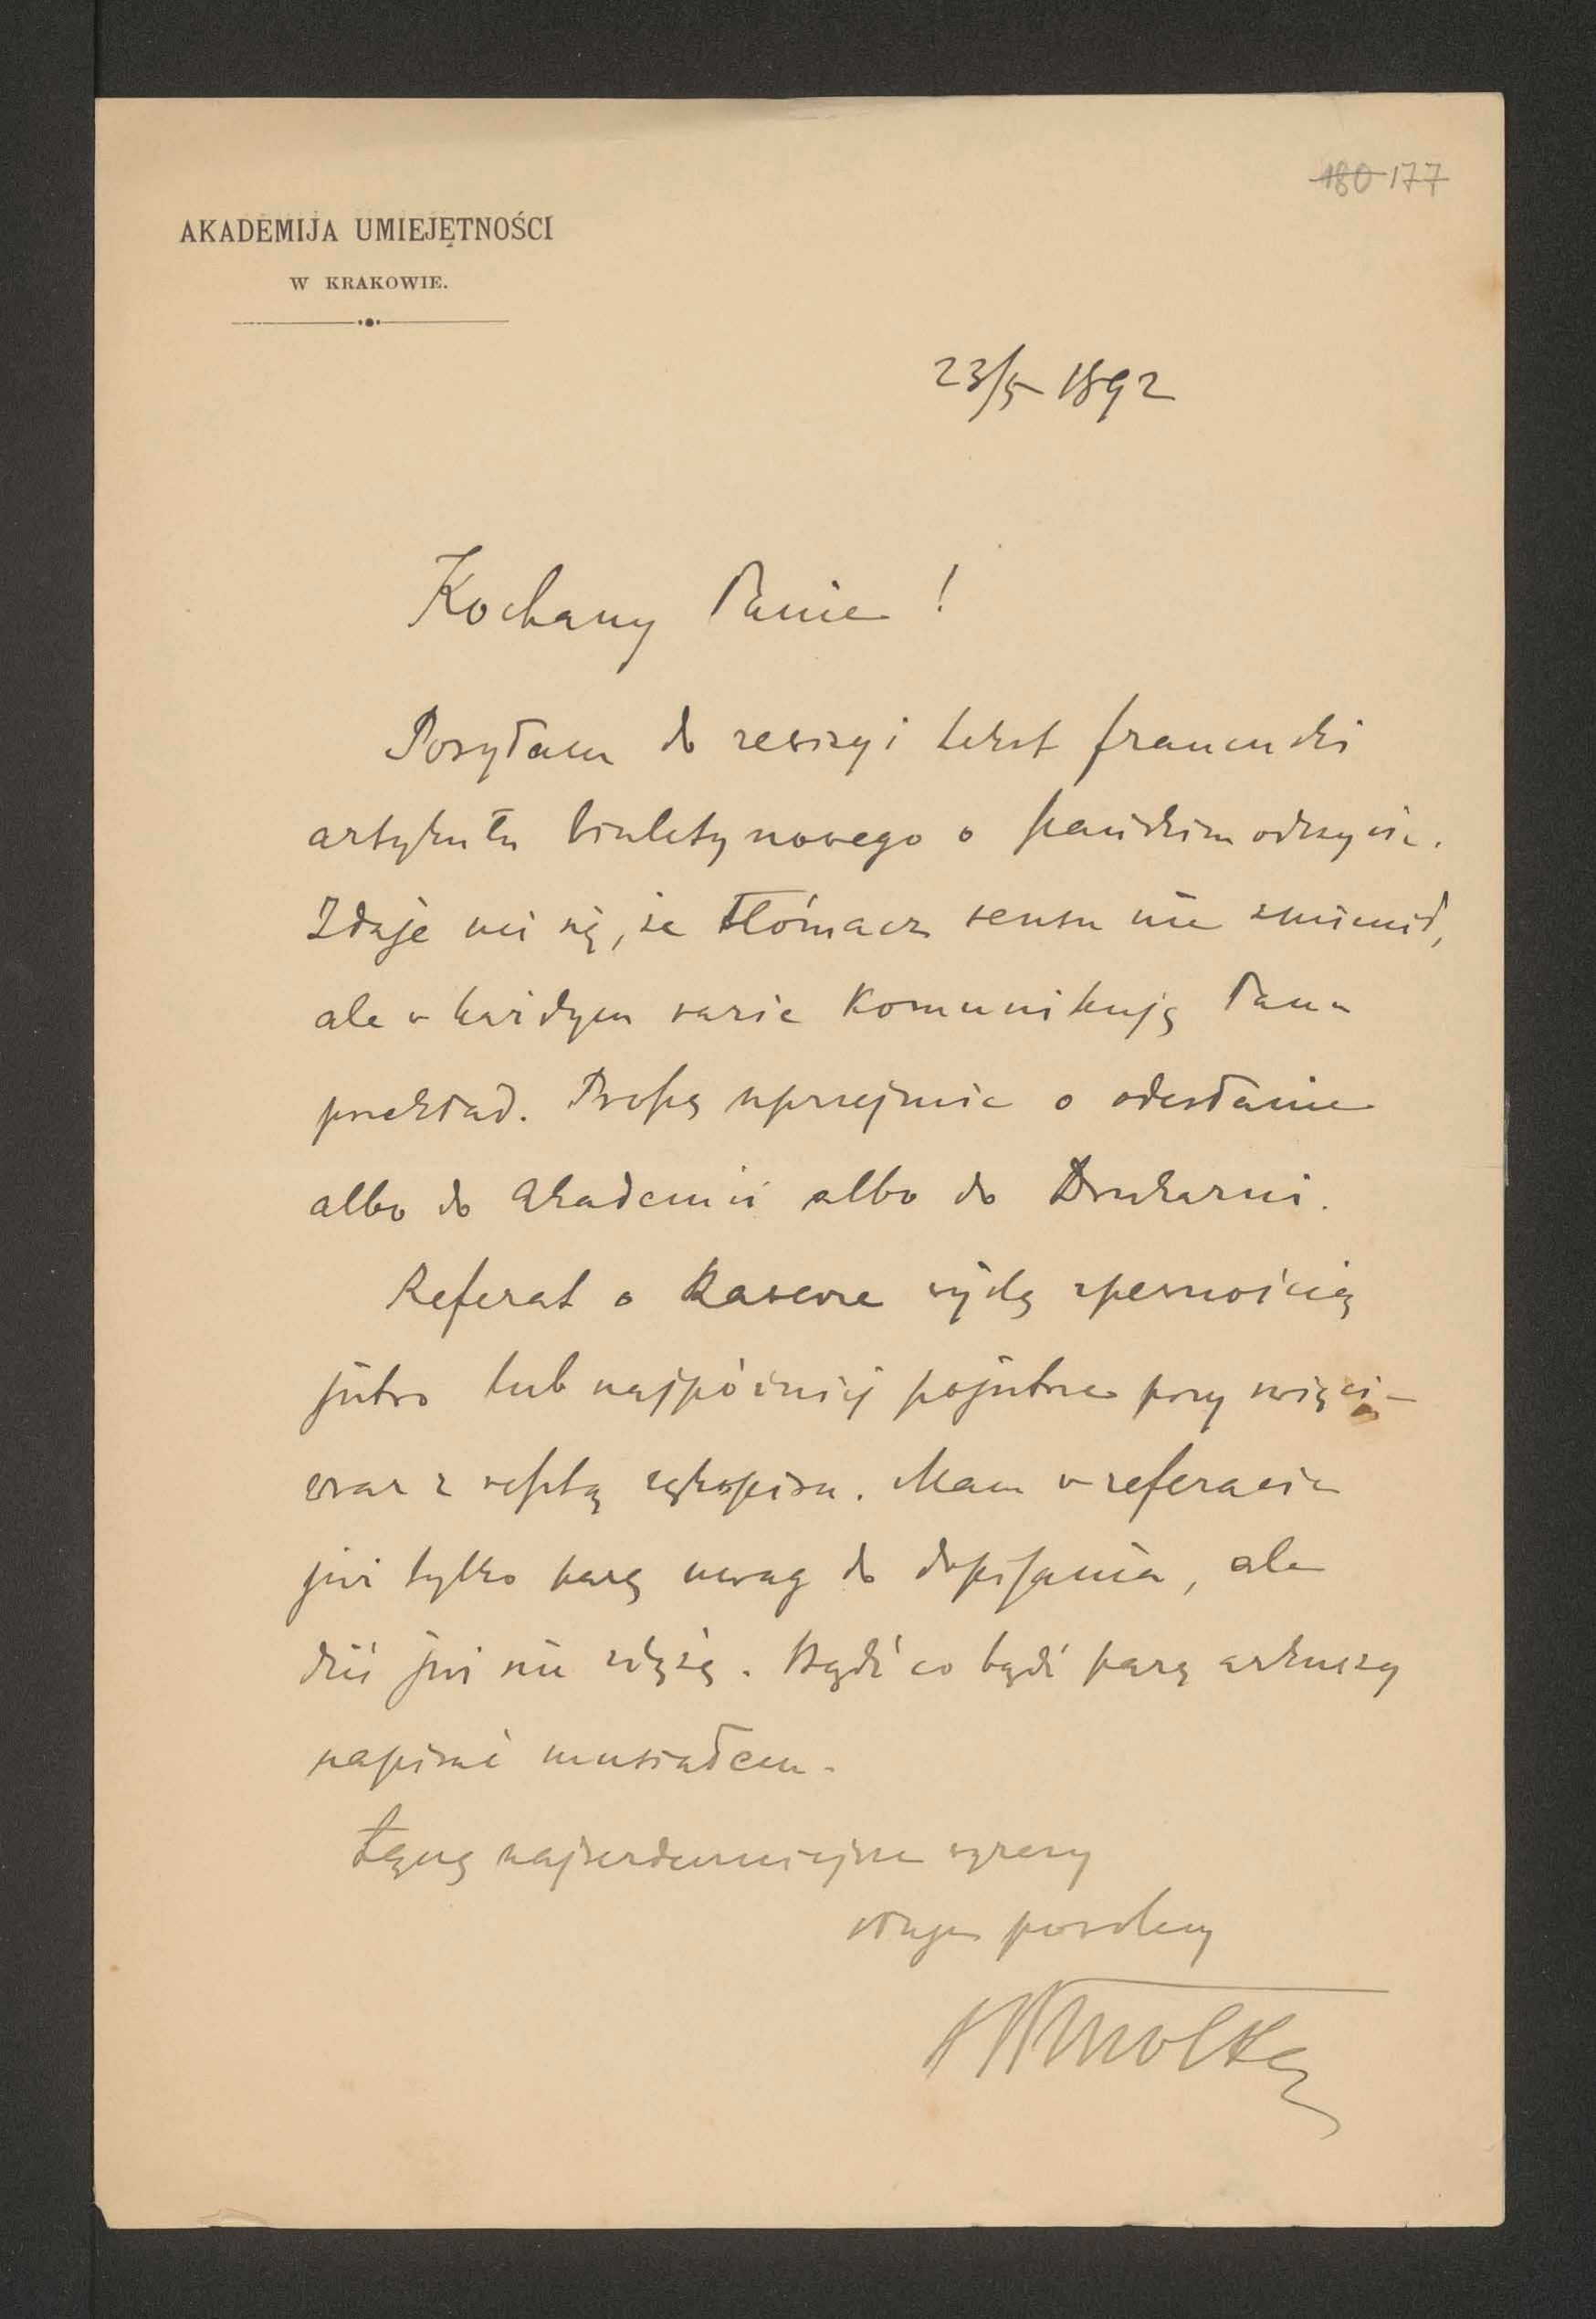 180 177
AKADEMIJA UMIEJĘTNOŚCI
W KRAKOWIE.
23/5 1892
Kochany Panie!
Posyłam do rewizyi tekst francuski
artykułu biuletynowego o pańskim odczycie.
Zdaje mi się, że tłómacz sensu nie zmienił,
ale w każdym razie komunikuję Panu
przekład. Proszę uprzejmie o odesłanie
albo do Akademii albo do Drukarni.
Referat o wyślę z pewnością
jutro lub najpóźniej pojutrze przy
wraz z resztą rękopisu. Mam w referacie
już tylko parę uwag do dopisania, ale
dziś już nie zdążę. Bądź co bądź parę arkuszy
napisać musiałem.
Łączę najserdeczniejsze wyrazy
sługa powolny
SSmolka